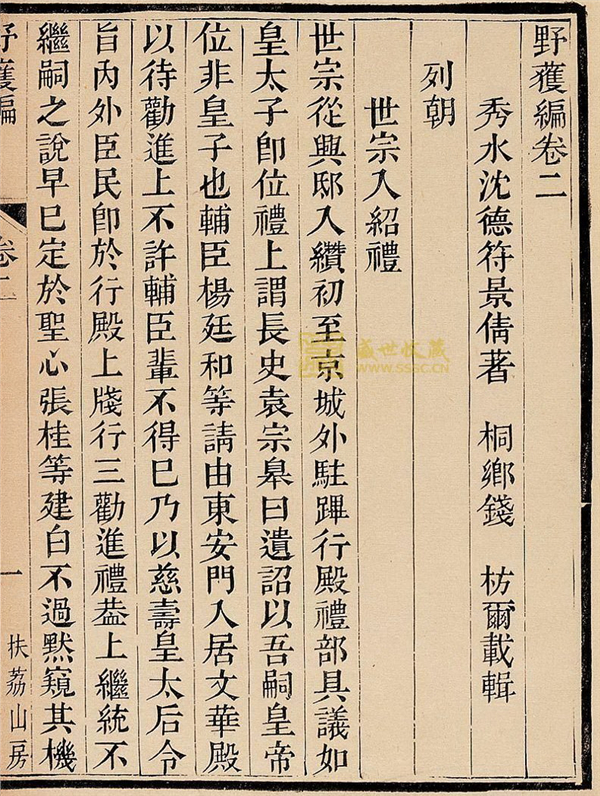 野獲編卷二
秀水沈德符景倩著　桐鄉錢　枋爾載輯
列朝
世宗入紹禮
世宗從興邸入纘初至京城外駐蹕行殿禮部具議如
皇太子卽位禮上謂長史袁宗皋曰遺詔以吾嗣皇帝
位非皇子也輔臣楊廷和等請由東安門入居文華殿
以待勸進上不許輔臣輩不得已乃以慈壽皇太后令
旨內外臣民卽於行殿上牋行三勸進禮葢上繼統不
繼嗣之說早已定於聖心張桂等建白不過默窺其機
野獲編　卷二　一　扶荔山房
盛世收藏
WWW.SSSC.CN